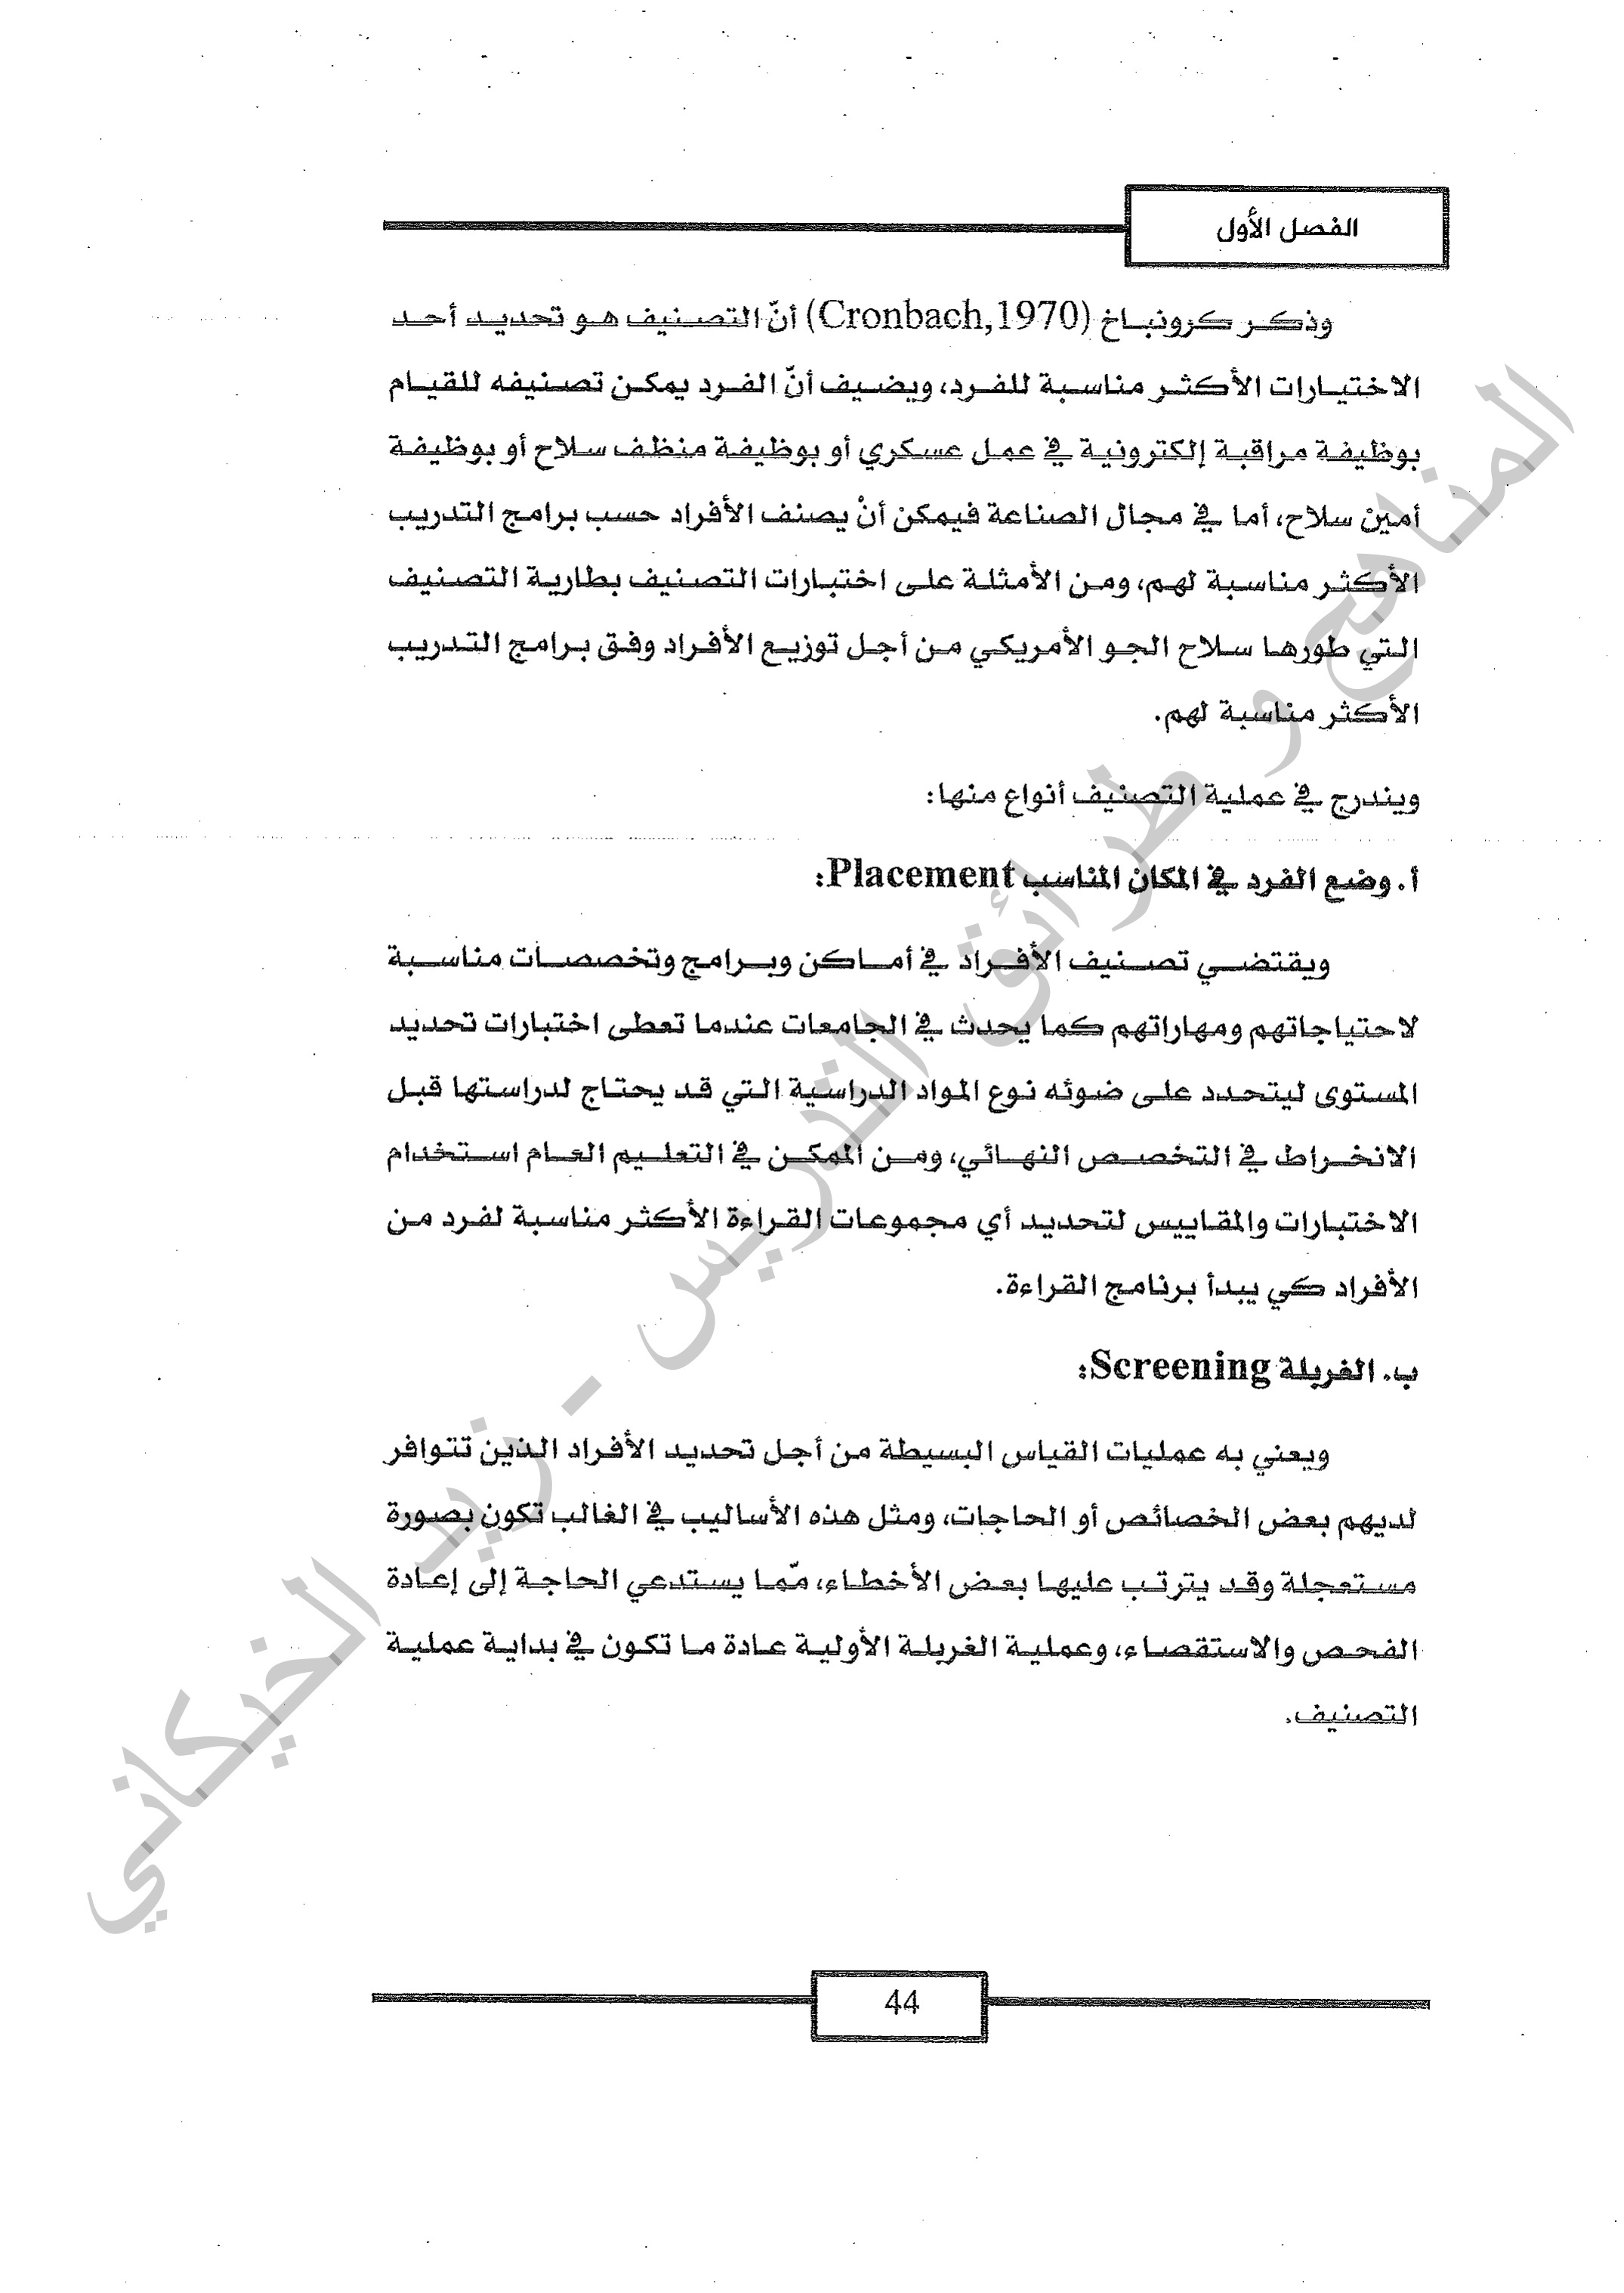 الفصل الأول
وذكر كرونباخ (Cronbach,1970) أنّ التصنيف هو تحديد أحد
الاختيارات الأكثر مناسبة للفرد، ويضيف أنّ الفرد يمكن تصنيفه للقيام
بوظيفة مراقبة إلكترونية في عمل عسكري أو بوظيفة منظف سلاح أو بوظيفة
أمين سلاح، أما في مجال الصناعة فيمكن أنْ يصنف الأفراد حسب برامج التدريب
الأكثر مناسبة لهم، ومن الأمثلة على اختبارات التصنيف بطارية التصنيف
التي طورها سلاح الجو الأمريكي من أجل توزيع الأفراد وفق برامج التدريب
الأكثر مناسبة لهم.
ويندرج في عملية التصنيف أنواع منها:
أ. وضع الفرد في المكان المناسب Placement:
ويقتضي تصنيف الأفراد في أماكن وبرامج وتخصصات مناسبة
لاحتياجاتهم ومهاراتهم كما يحدث في الجامعات عندما تعطى اختبارات تحديد
المستوى ليتحدد على ضوئه نوع المواد الدراسية التي قد يحتاج لدراستها قبل
الانخراط في التخصص النهائي، ومن الممكن في التعليم العام استخدام
الاختبارات والمقاييس لتحديد أي مجموعات القراءة الأكثر مناسبة لفرد من
الأفراد كي يبدأ برنامج القراءة.
ب. الغربلة Screening:
ويعني به عمليات القياس البسيطة من أجل تحديد الأفراد الذين تتوافر
لديهم بعض الخصائص أو الحاجات، ومثل هذه الأساليب في الغالب تكون بصورة
مستعجلة وقد يترتب عليها بعض الأخطاء، ممّا يستدعي الحاجة إلى إعادة
الفحص والاستقصاء، وعملية الغربلة الأولية عادة ما تكون في بداية عملية
التصنيف.
44
المناهج و طرائق التدريس - زيد الخيكاني